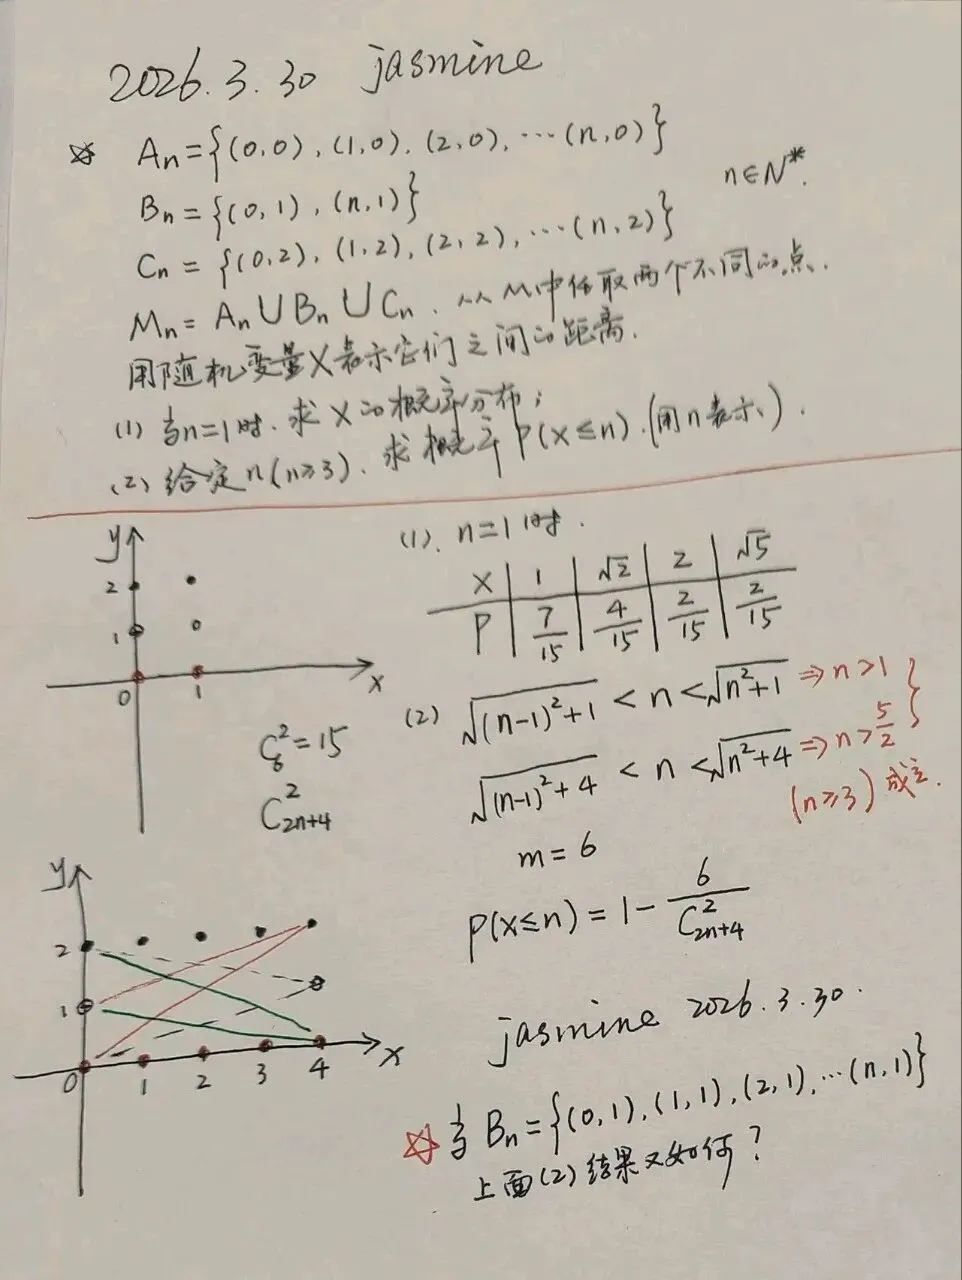 2026.3.30 jasmine
☆ Aₙ={(0,0),(1,0),(2,0),…(n,0)}
Bₙ={(0,1),(n,1)} n∈N*.
Cₙ={(0,2),(1,2),(2,2),…(n,2)}
Mₙ=Aₙ∪Bₙ∪Cₙ.从M中任取两个不同的点.
用随机变量X表示它们之间的距离.
(1) 当n=1时.求X的概率分布;
(2) 给定n(n≥3).求概率P(X≤n).(用n表示).
(1).n=1时.
X | 1 | √2 | 2 | √5
P | 7/15 | 4/15 | 2/15 | 2/15
y
2
1
0 1 x
C₆²=15
C²₂ₙ₊₄
(2) √((n-1)²+1) < n < √(n²+1) ⇒ n>1
√((n-1)²+4) < n < √(n²+4) ⇒ n>5/2
(n≥3) 成立.
m=6
P(X≤n)=1-6/C²₂ₙ₊₄
y
2
1
0 1 2 3 4 x
jasmine 2026.3.30.
☆ 当Bₙ={(0,1),(1,1),(2,1),…(n,1)}
上面(2)结果又如何?